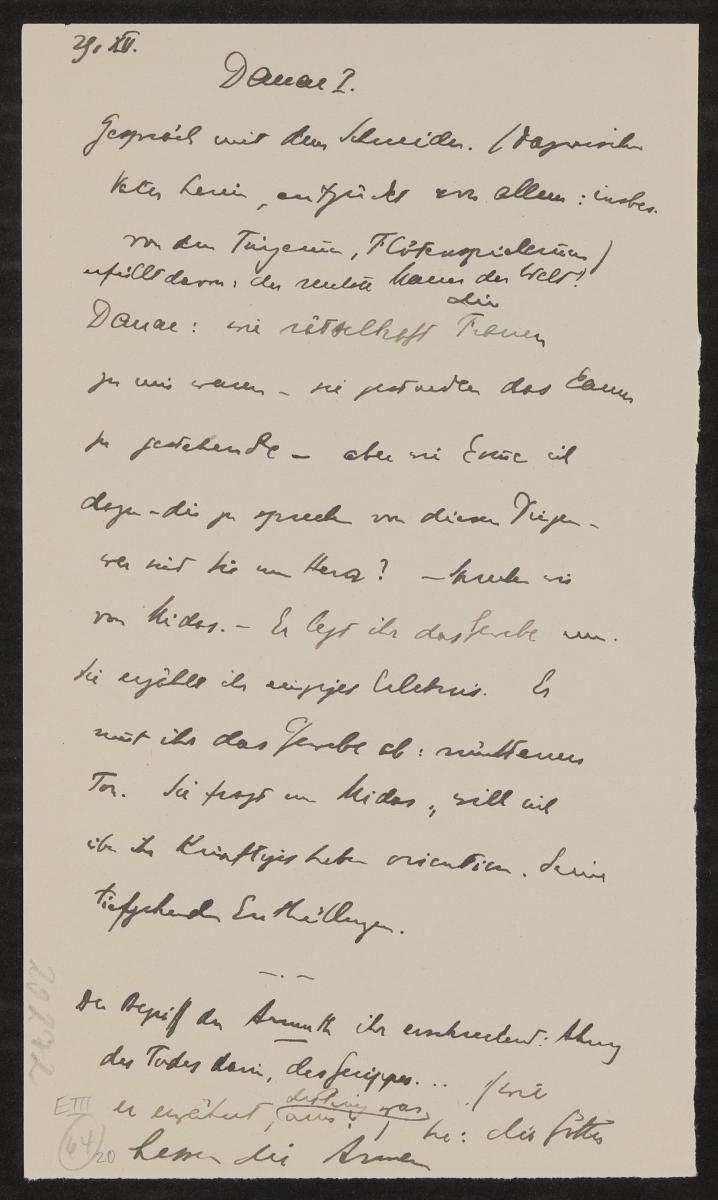 29. XII.
Danae I.
Gespräch mit dem Schneider. (Dazwischen
Vater herein, entzückt von allem: insbes.
von den Tänzerinnen, Flötenspielerinnen)
erfüllt davon: der reichste Mann der Welt!
die
Danae: wie rätselhaft Frauen
zu mir waren – sie
zu gestehende – aber wie komme ich
dazu – die zu sprechen von diesen Dingen –
wer sind Sie mein Herr? – Sprechen wir
von Midas. – Er legt ihr das Gewebe um.
Sie erzählt ihr einziges Erlebnis. Er
nimmt ihr das Gewebe ab:
Ton. Sie fragt um Midas, will sich
über ihr künftiges Leben orientieren. Seine
tiefgehenden Enthüllungen.
– . –
Der Begriff der Armuth ihr erschreckend: Ahnung
des Todes darin, des Gerippes... / (wie
er erwähnt, er: die Götter
hassen die Armen
E III
64/20